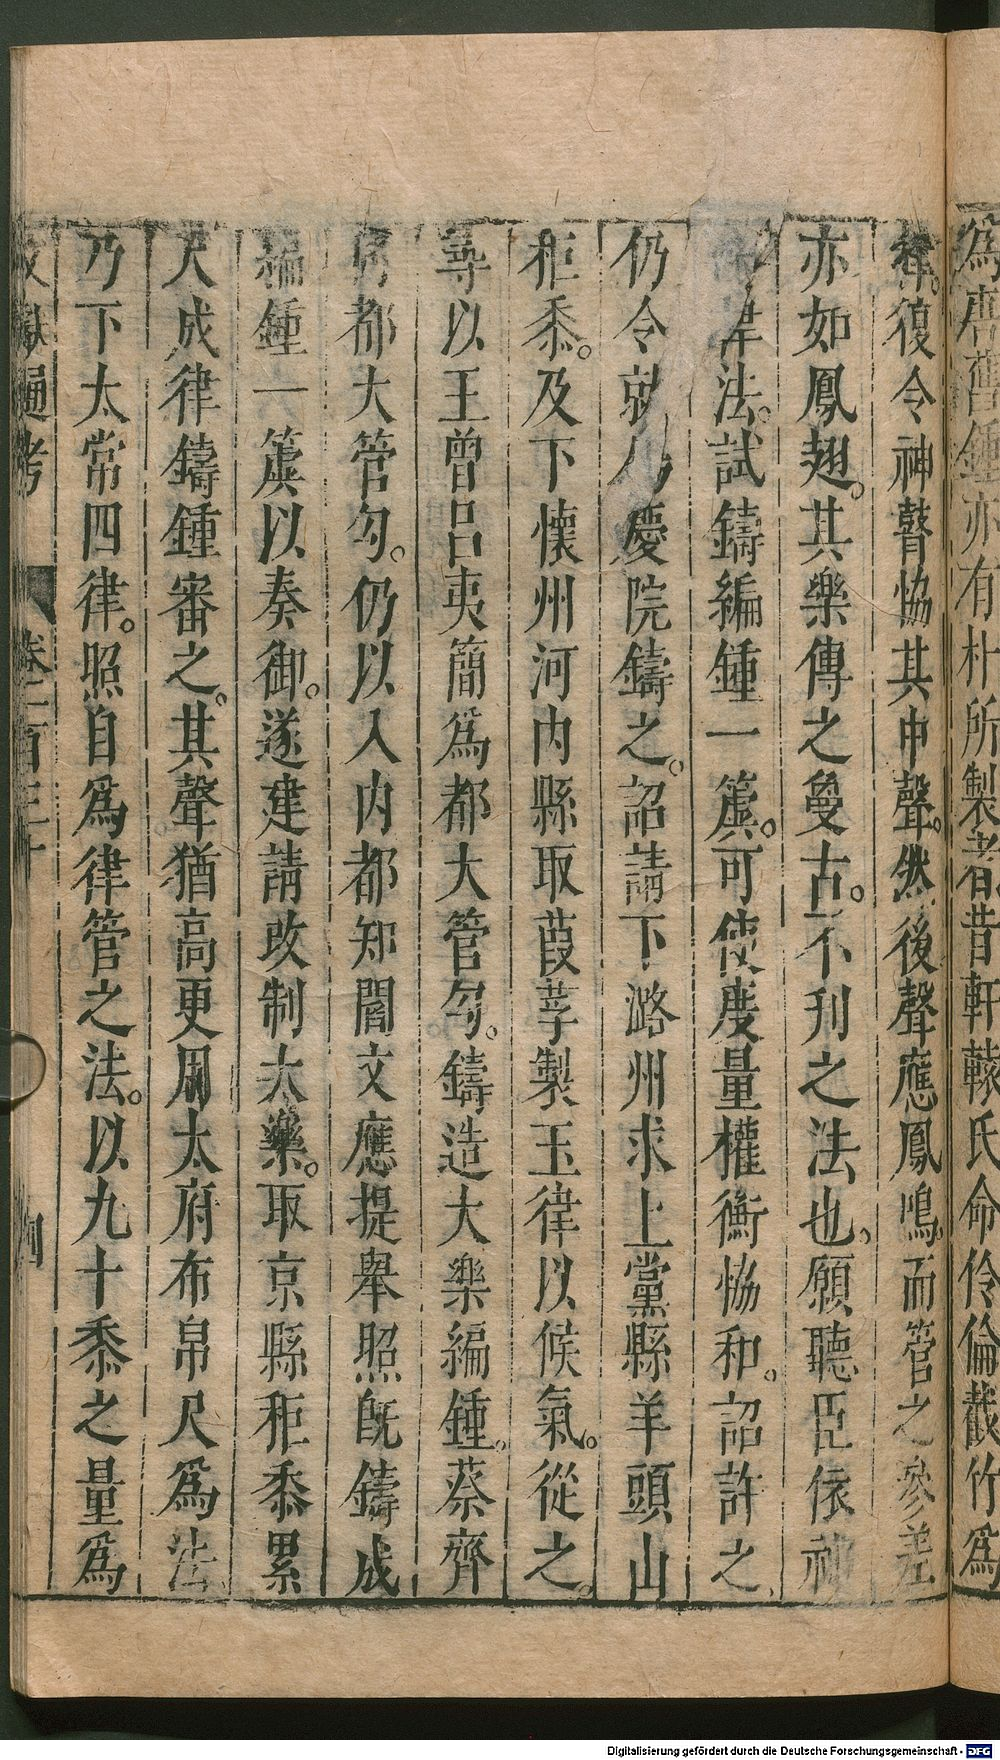 爲齊舊鍾亦有朴所製者昔軒轅氏命伶倫截竹爲
律。復令神瞽恊其中聲。然後聲應鳳鳴。而管之參差
亦如鳳翅。其樂傳之曼古。不刋之法也。願聽臣依神
律法。試鑄編鍾一簴。可使度量權衡恊和。詔許之
仍令就 慶院鑄之。詔請下潞州求上黨縣羊頭山
秬黍。及下懷州河内縣取葭莩製玉律以候氣。從之。
尋以王曾呂夷簡爲都大管勾。鑄造大樂編鍾。蔡齊
同都大管勾。仍以入内都知閻文應提舉照旣鑄成
編鍾一簴以奏御。遂建請改制大樂。取京縣秬黍累
尺成律鑄鍾審之。其聲猶高更用太府布帛尺爲法
乃下太常四律。照自爲律管之法。以九十黍之量爲
文獻通考 卷一百三十 四
Digitalisierung gefördert durch die Deutsche Forschungsgemeinschaft - DFG